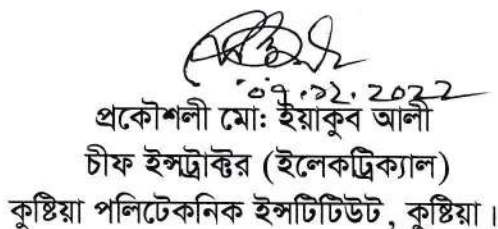 ০৭.১২.২০২২
প্রকৌশলী মো: ইয়াকুব আলী
চীফ ইন্সট্রাক্টর (ইলেকট্রিক্যাল)
কুষ্টিয়া পলিটেকনিক ইন্সটিটিউট, কুষ্টিয়া।